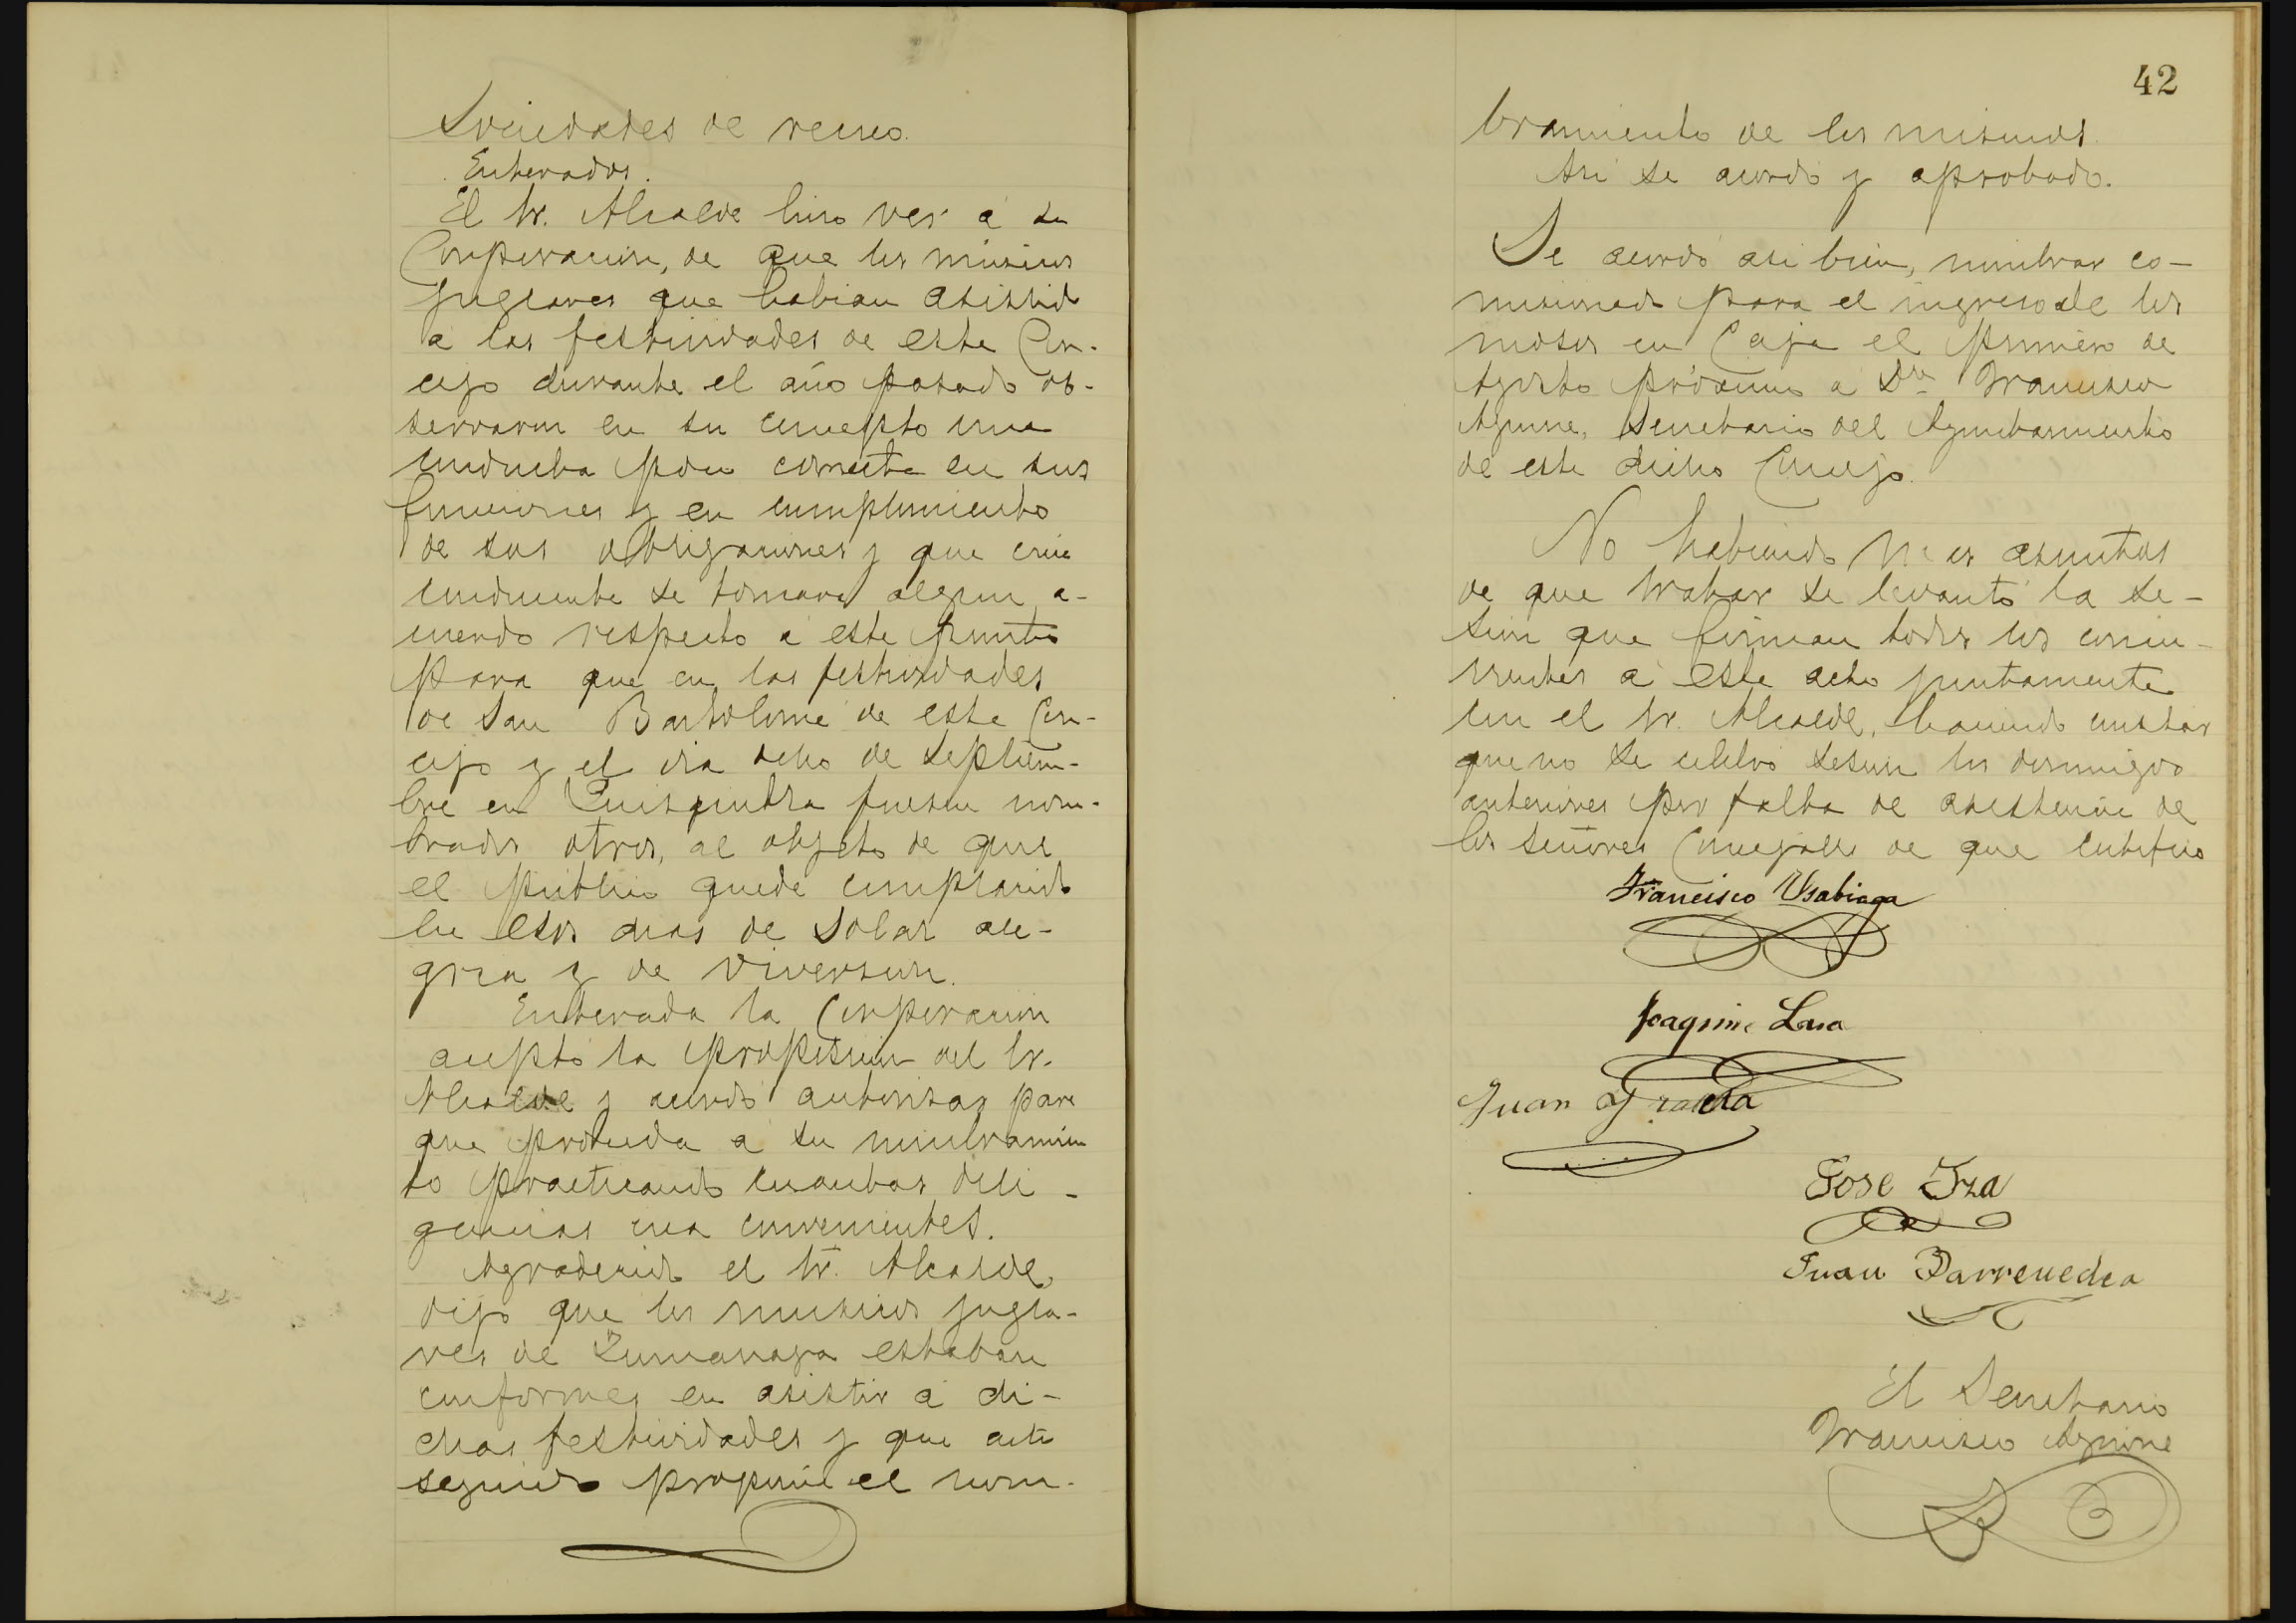 Sociedades de recreo.
Enterados.
El Sr. Alcalde hizo ver á su
Corporacion, de que los músicos
juglares que habian asistido
á las festividades de este Con-
cejo durante el año pasado ob-
servaron en su concepto una
conducta poco correcta en sus
funciones y en cumplimiento
de sus obligaciones y que creia
conducente se tomara algun a-
cuerdo respecto á este punto
para que en las festividades
de San Bartolomé de este Con-
cejo y el dia ocho de Septiem-
bre en fuesen nom-
brados otros, al objeto de que
el público quede complacido
en esos dias de solaz ale-
gria y de diversion.
Enterada la Corporacion
aceptó la proposicion del Sr.
Alcalde y acordó autorizar para
que proceda á su nombramien
to practicando cuantas dili-
gencias crea convenientes.
Agradecido el Sr. Alcalde,
dijo que los musicos jugla-
res de Zumarraga estaban
conformes en asistir á di-
chas festividades y que acto
seguido proponia el nom-
42
bramiento de los mismos.
Asi se acordó y aprobado.
Se acordó asi bien, nombrar co-
misionado para el ingreso de los
mosos en Caja el primero de
Agosto próximo a Dn Francisco
Aguirre, Secretario del Ayuntamiento
de este dicho Concejo.
No habiendo mas asuntos
de que tratar se levantó la se-
sion que firman todos los concu-
rrentes á este acto juntamente
con el Sr. Alcalde, haciendo constar
que no se celebró sesion los domingos
anteriores por falta de asistencia de
los señores Concejales de que certifico
Francisco Usabiaga
Joaquin Lasa
Juan
Jose Iza
Juan Barrenechea
El Secretario
Francisco Aguirre